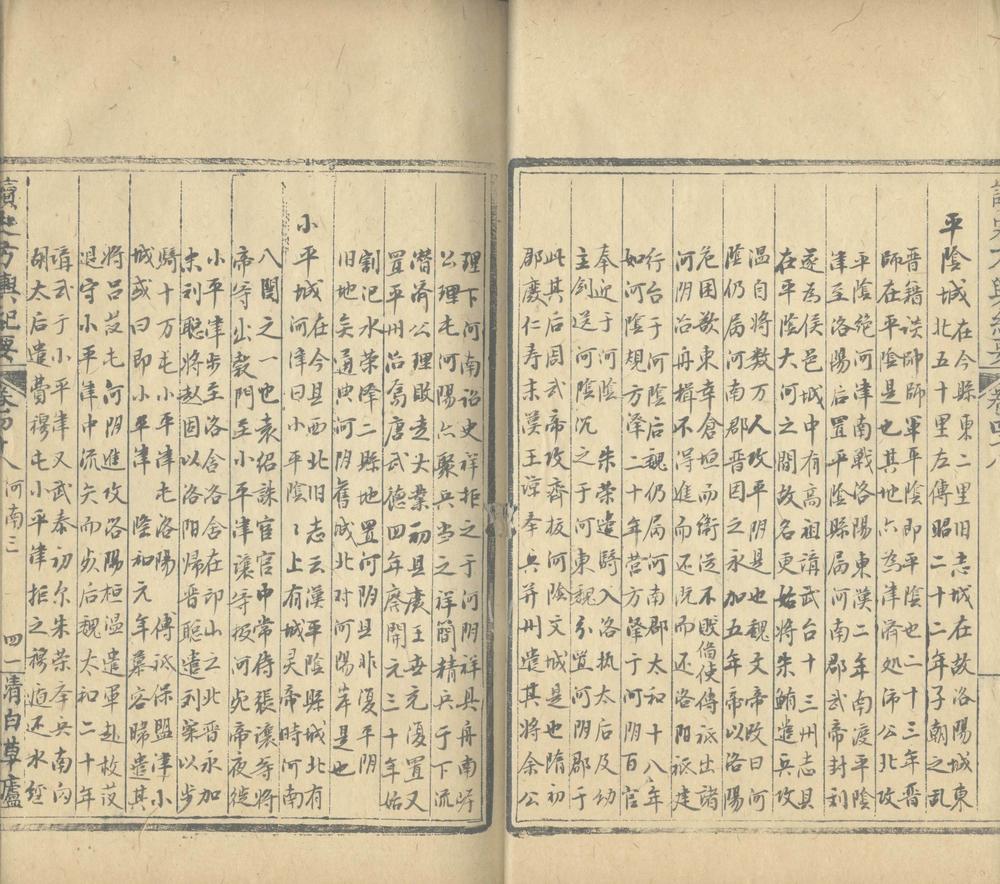 平陰城在今縣東二里旧志城在故洛陽城東
北五十里左傳昭二十二年子朝之乱
晋籍谈帅師軍平陰即平陰也二十三年晋
師在平陰是也其地亦為津濟処沛公北攻
平陰絶河津南戰洛陽東漢二年南渡平陰
津至洛陽后置平陰縣局河南郡武帝封刘
遂為侯邑城中有高祖講武台十三州志县
在平陰大河之間故名更始将朱鮪遣兵攻
温自将数万人攻平阴是也魏文帝改曰河
陰仍局河南郡晋因之永加五年帝以洛陽
危困欲東幸倉垣而衛从不敗借使傅祗出詣
河阴治舟楫不得進而还既而还洛阳祗建
行台于河陰后魏仍局河南郡太和十八年
如河陰規方澤二十年营方澤于河阴百官
奉迎于河陰 朱荣遣騎入洛执太后及幼
主釗送河陰沉之于河東魏分置河阴郡于
此其后周武帝攻齐拔河陰文城是也隋初
郡廢仁寿末漢王谅奉兵并州遣其将余公
理下河南诏史祥拒之于河阴祥具舟南岸
公理屯河陽亦聚兵当之祥簡精兵于下流
潜济公理敗走大業初县废王世元復置又
置平州治焉唐武德四年廢開元三十年始
割汜水荣降二縣地置河阴县非復平阴
旧地矣通典河阴舊城北对河陽岸是也
小平城在今县西北旧志云漢平陰縣城北有
河津曰小平陰〻上有城灵帝時河南
八関之一也袁绍誅宦官中常侍張讓等将
帝等出穀門至小平津讓等投河死帝夜徒
小平津步至洛舍洛舍在邙山之北晋永加
末刘聡将敖因以洛阳歸晋聡遣刘粲以步
騎十万屯小平津屯洛陽 傅祗保盟津小
城或曰即小平津 隆和元年慕容暐遣其
将吕护屯河阴進攻洛陽桓温遣軍赴救护
退守小平津中流矢而歿后魏太和二十年
講武于小平津又武泰初尔朱荣奉兵南向
胡太后遣費穆屯小平津拒之穆遁还水经
讀史方輿紀要 卷四十八 河南三 四一清白草廬